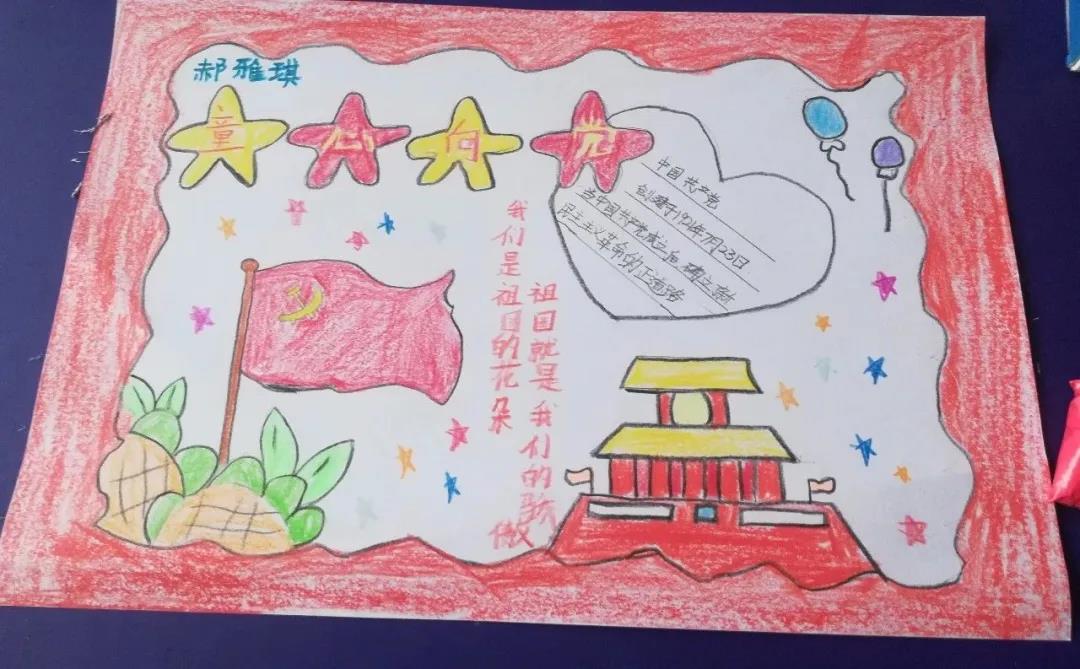 郝雅琪
童心向党
中国共产党
创建于1921年7月23日
当中国共产党成立后,确立新
民主主义革命的正道路
我们是祖国的花朵
祖国就是我们的骄傲